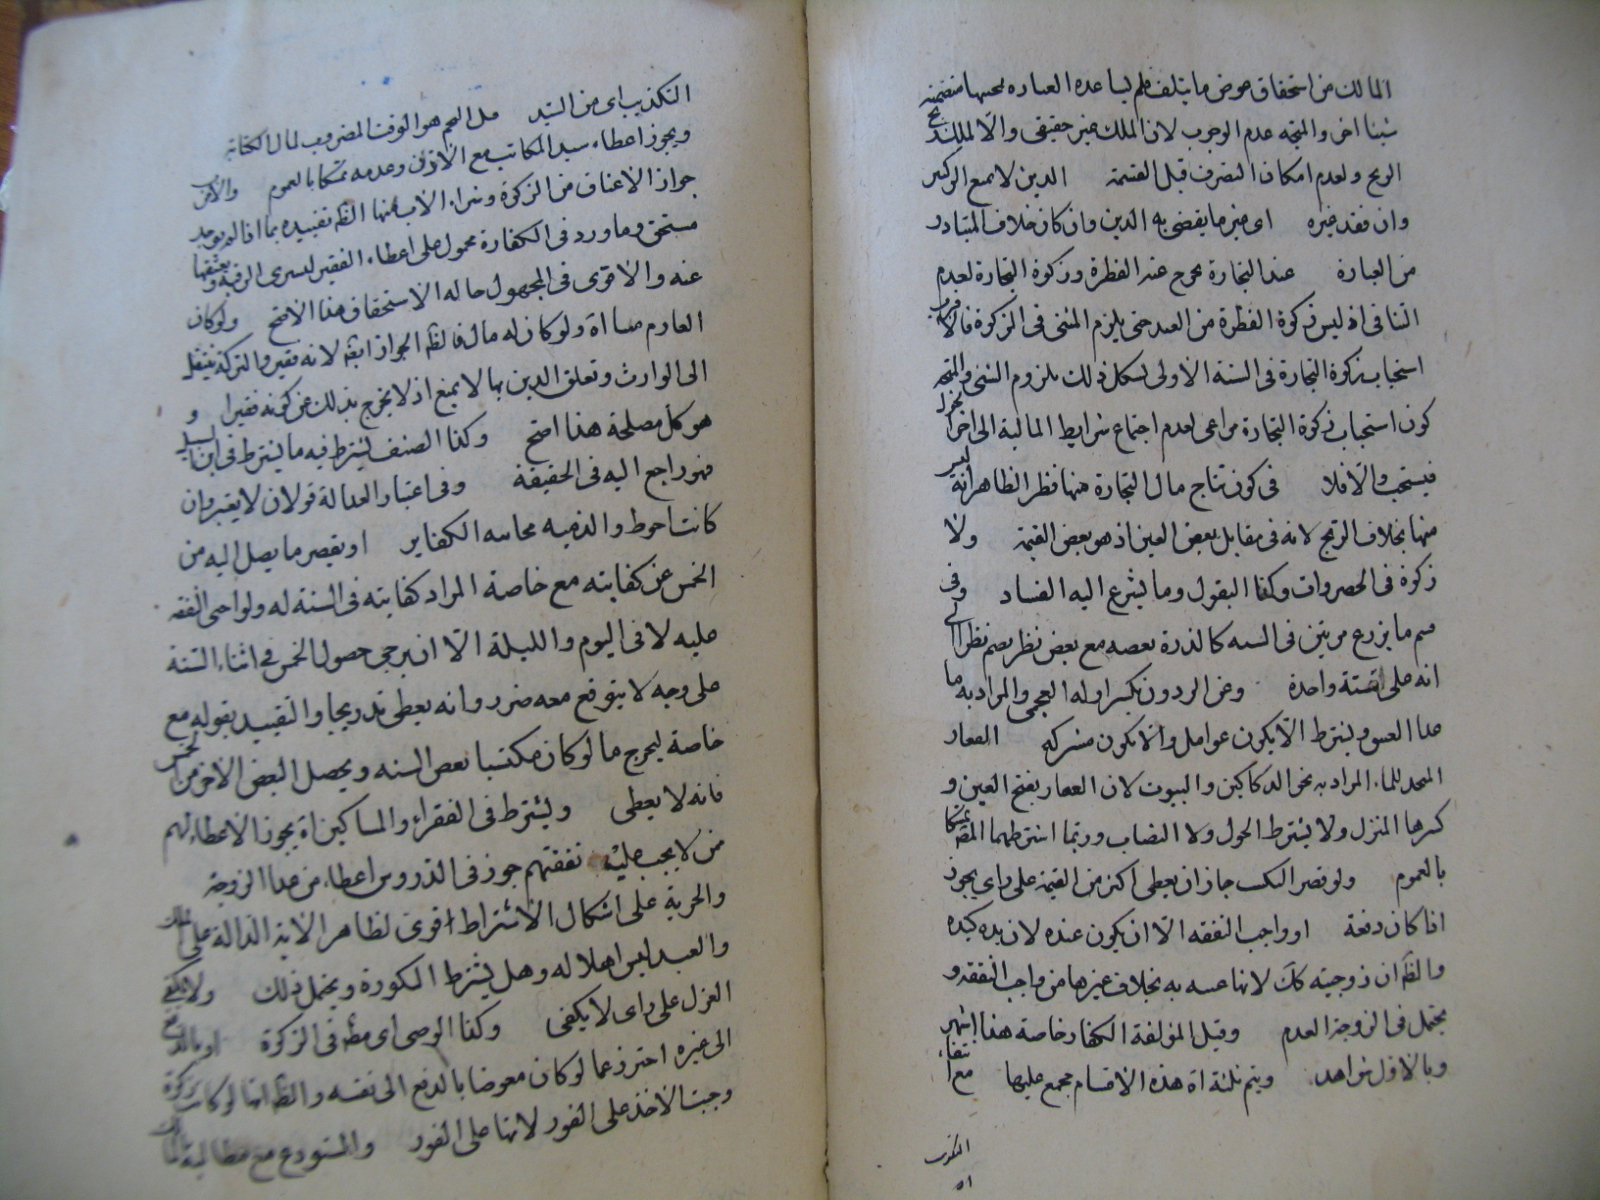 المالك من استحقاق عوض ما يتلف فلم يساعده العباره بحسبها متضمنه
شيئا اخر والمتجه عدم الوجوب لان الملك غير حقيقى والا لملك
الربح ولعدم امكان التصرف قبل القسمة الدين لا يمنع الزكوة
وان فقد غيره اى غير ما يقضى به الدين وان كان خلاف المتبادر
من العبارة عند التجارة يخرج عنه الفطرة وزكوة التجارة لعدم
التنافى اذ ليس زكوة الفطرة من العبد حتى يلزم المثنى فى الزكوة فالاقرب
استحباب زكوة التجارة فى السنة الاولى لكل ذلك يلزم الثنى والمتجه
كون استحباب زكوة التجارة مراعى لعدم اجتماع شرايط المالية الى اخر الحول
فيستحب والا فلا فى كون نتاج مال التجارة منها نظر الظاهر انه ليس
منها بخلاف الربح لانه فى مقابل بعض العين اذ هو بعض القيمة ولا
زكوة فى الخضروات وكذا البقول وما يشرع اليه الفساد وفى
ضم ما يزرع مرتين فى السنه كالذرة بعضه مع بعض نظر يضم نظرا الى
انه على سنة واحدة وعن البردون بكسر اوله العجمى والمراد به ما
عدا العتيق ويشترط الا يكون عوامل والا يكون مشركه العقار
المتخذ للنماء المراد به نحو الدكاكين والبيوت لان العقار بفتح العين و
كسرها المنزل ولا يشترط الحول ولا النصاب وربما اشترطهما المصنف تمسكا
بالعموم ولو قصر التكسب جاز ان يعطى اكثر من القيمة على راى يجوز
اذا كان دفعة او واجب النفقه الا ان يكون عنده لان يده كيده
والظ ان زوجيته كك لانها غنيه به بخلاف غيرها من واجب النفقه و
يحتمل فى الزوجة العدم وقيل المؤلفة الكفار خاصة هذا اشهر
وبالاول شواهد ويتم ثلثة اه هذه الاقسام مجمع عليها مع انتفاء
التكذيب
التكذيب اى من السيد حل النجم هو الوقت المضروب لمال الكتابة
ويجوز اعطاء سيد المكاتب مع الاذن وعدمه تمسكا بالعموم والاقرب
جواز الاعتاق من الزكوة وشراء الاب منها الظ تقييده بما اذا لم يوجد
مستحق وما ورد فى الكفارة محمول على اعطاء الفقير ليسرى الرقبه ويعتقها
عنه والاقوى فى المجهول حاله الاستحقاق هذا الاصح ولو كان
الغارم اه ولو كان له مال فالظ الجواز ايضا لانه فقير والتركة ينتقل
الى الوارث وتعلق الدين بها لا يمنع اذ لا يخرج بذلك عن كونه فقيرا و
هو كل مصلحة هذا اصح وكذا الصنف يشترط فيه ما يشترط فى ابن السبيل
فهو راجع اليه فى الحقيقة وفى اعتبار العدالة قولان لا يعتبر وان
كانت احوط والذميه الكفاير او يقصر ما يصل اليه من
الخمس عن كفايته مع خاصة المراد كفايته فى السنة له ولواجبى النفقه
عليه لا فى اليوم والليلة الا ان يرجى حصول الخمس فى اثناء السنة
على وجه لا يتوقع معه ضرر وانه يعطى تدريجا والتقييد بقوله مع
خاصة ليخرج ما لو كان مكتسبا بعض السنه ويحصل البعض الاخر من الخمس
فانه لا يعطى ويشترط فى الفقراء والمساكين اه يجوز الاعطاء لهم
من لا يجب عليه نفقتهم جوز فى الدروس اعطاء من عدا الزوجة
والحرية على اشكال الاشتراط اقوى لظاهر الاية الدالة على
والعبد ليس اهلا له وهل يشترط الذكورة ويحتمل ذلك ولا يكفى
العزل على راى لا يكفى وكذا الوصى اى فى الزكوة او بالدفع
الى غيره احترز عما لو كان معوضا بالدفع الى نفسه والظ انها لو كانت زكوة
وجبت الاخذ على الفور لانها على الفور والمستودع مع مطالبة المالك